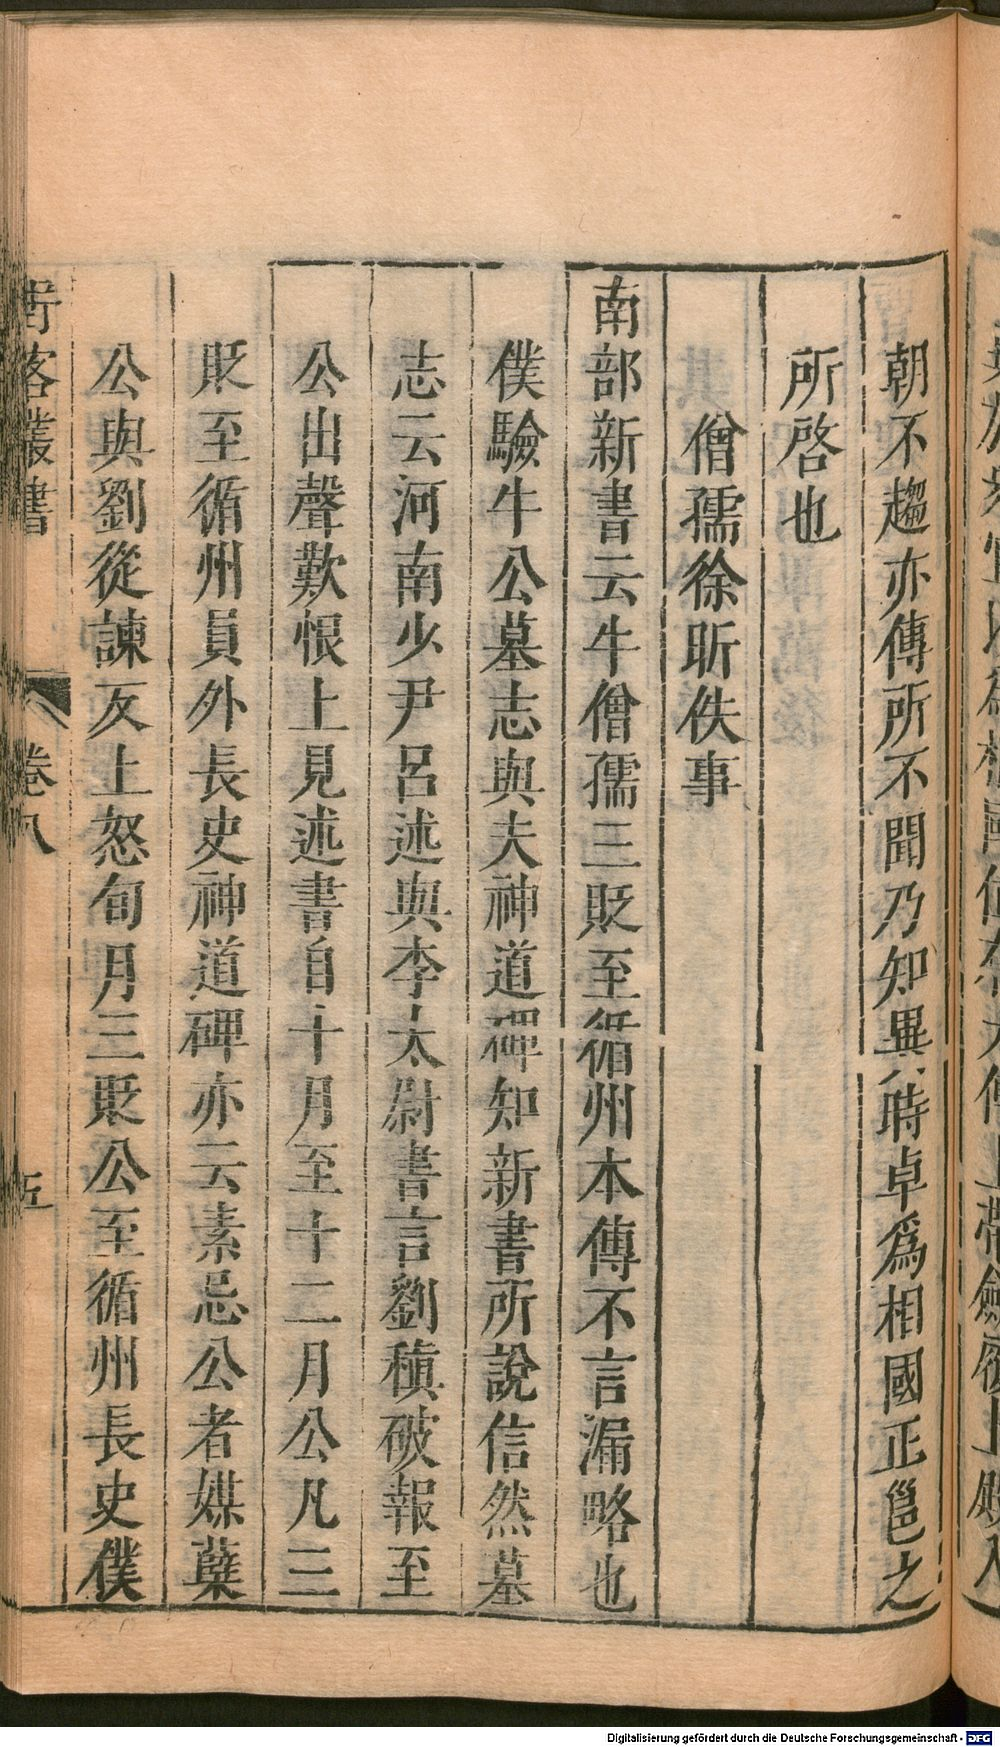 朝不趨亦傳所不聞乃知異時卓爲相國正邕之
所啓也
僧孺徐昕佚事
南部新書云牛僧孺三貶至循州本傳不言漏略也
僕驗牛公墓志與夫神道碑知新書所說信然墓
志云河南少尹呂述與李太尉書言劉稹破報至
公出聲歎恨上見述書自十月至十二月公凡三
貶至循州員外長史神道碑亦云素忌公者媒糵
公與劉從諫友上怒旬月三貶公至循州長史僕
野客叢書 卷八 五
Digitalisierung gefördert durch die Deutsche Forschungsgemeinschaft - DFG